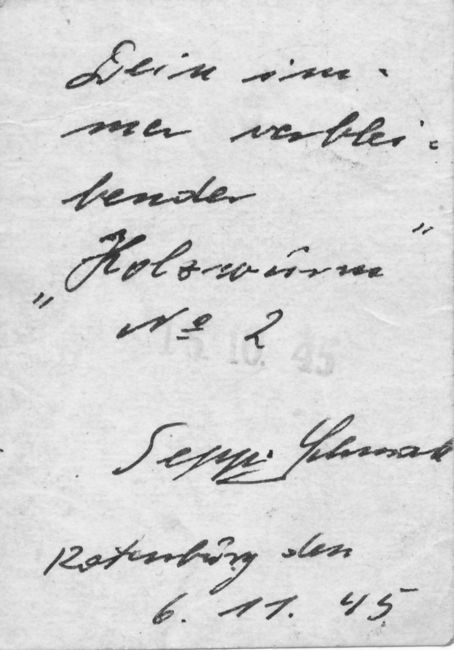 Dein im-
mer verblei-
bender
„Holzwurm"
No 2
15.10.45
Seppi
Rotenburg den
6. 11. 45